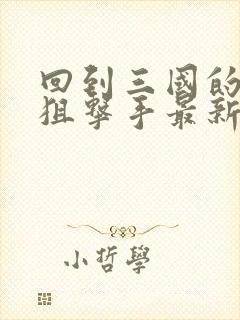 回到三國的
狙擊手最新
小哲學